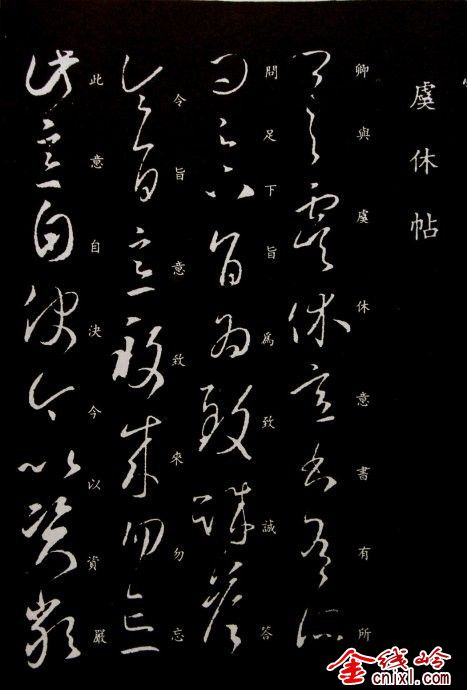 虞休帖
卿與虞休意書有所
問足下旨爲致誠答
令旨意致來勿忘
此意自決今以資嚴
金线岭